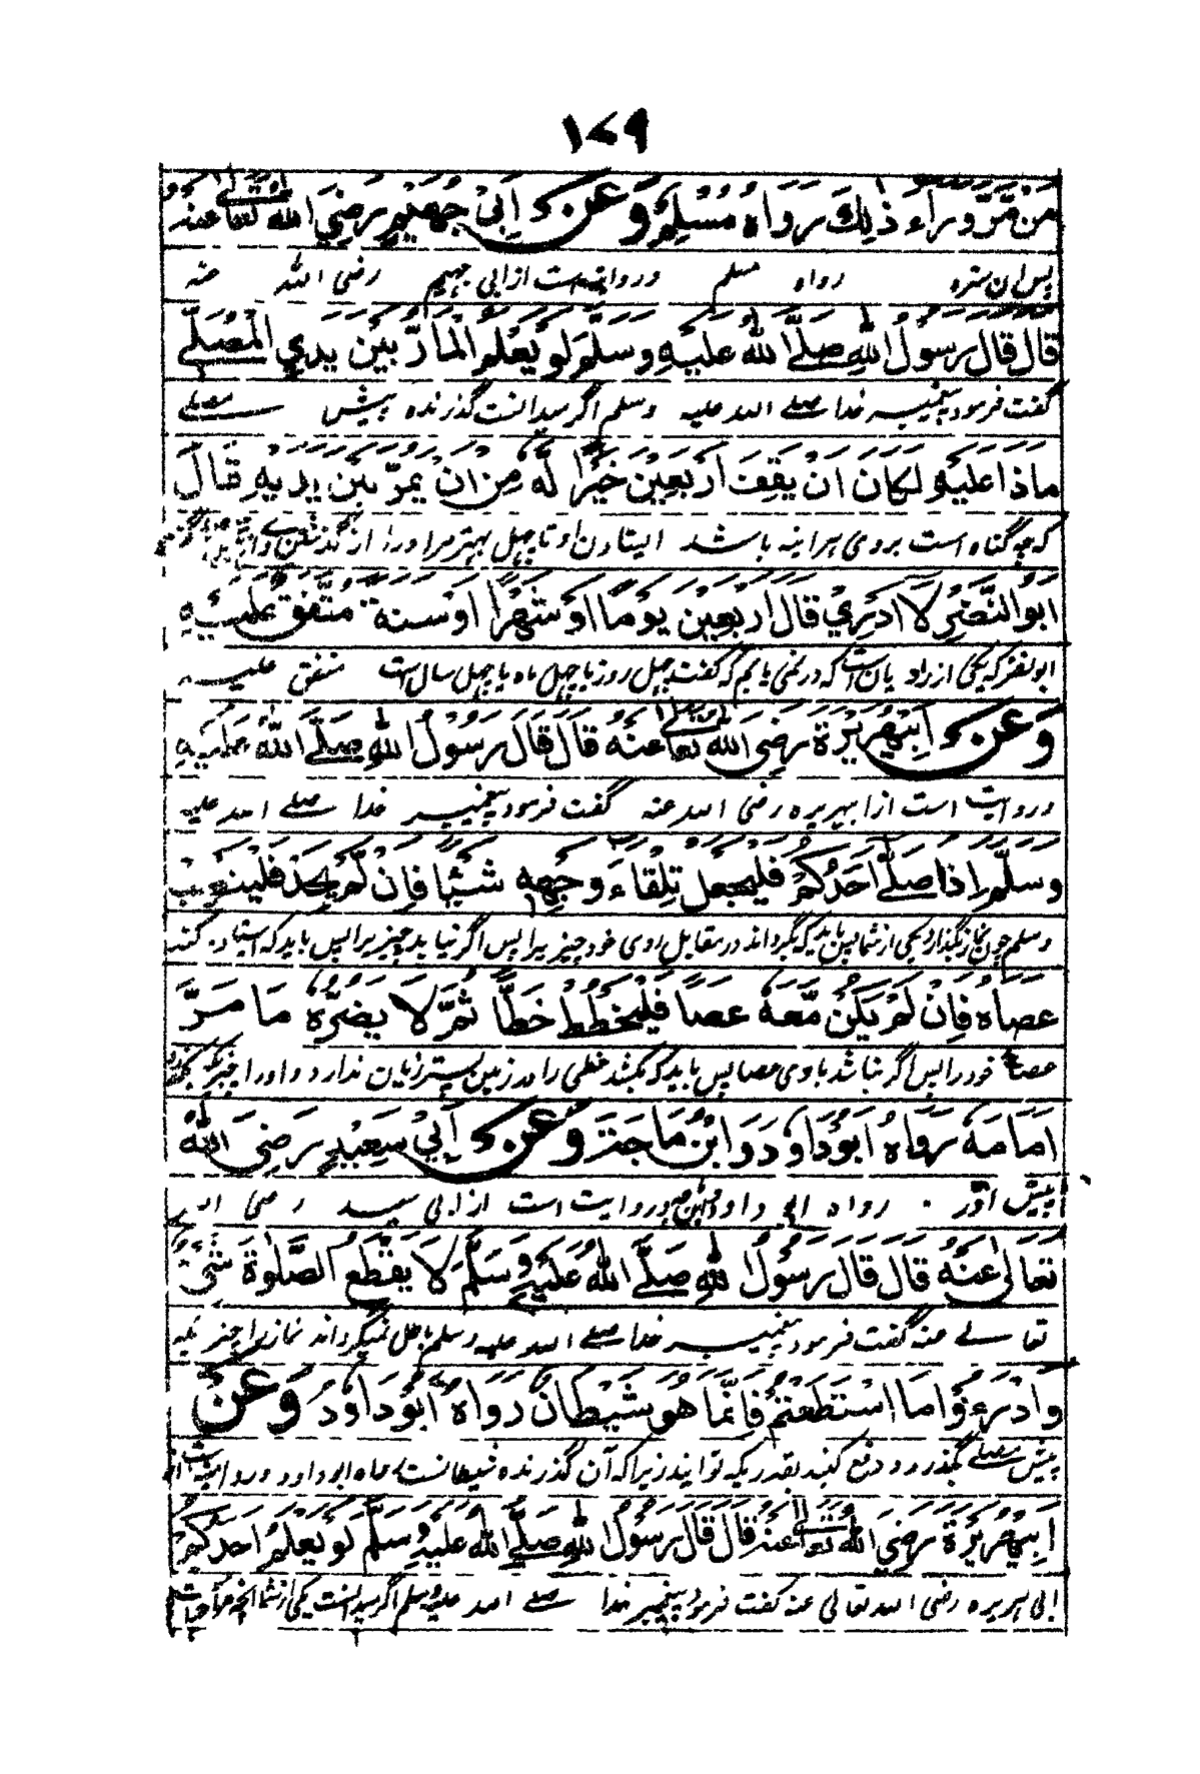 ١٧٩
مَنْ مَّرَّ وَرَاءَ ذٰلِكَ رَوَاهُ مُسْلِمٌ وَعَنْ اَبِيْ جُهَيْمٍ رَضِيَ اللهُ تَعَالٰى عَنْهُ
پس ان ستره رواه مسلم و روایت است از ابی جهیم رضی الله عنه
قَالَ قَالَ رَسُوْلُ اللهِ صَلَّى اللهُ عَلَيْهِ وَسَلَّمَ لَوْ يَعْلَمُ الْمَارُّ بَيْنَ يَدَيِ الْمُصَلِّيْ
گفت فرمود پیغمبر خدا صلی الله علیه وسلم اگر میدانست گذرنده پیش مصلی
مَاذَا عَلَيْهِ لَكَانَ اَنْ يَّقِفَ اَرْبَعِيْنَ خَيْرًا لَّهُ مِنْ اَنْ يَّمُرَّ بَيْنَ يَدَيْهِ قَالَ
که چه گناه است بروی هر اینه باشد ایستادن او تا چهل بهتر مر اورا از گذشتن
اَبُو النَّضْرِ لَا اَدْرِيْ قَالَ اَرْبَعِيْنَ يَوْمًا اَوْ شَهْرًا اَوْ سَنَةً مُتَّفَقٌ عَلَيْهِ
ابو نضر که یکی از راویان است که در نمی یابم که گفت چهل روز یا چهل ماه یا چهل سال است متفق علیه
وَعَنْ اَبِيْهُرَيْرَةَ رَضِيَ اللهُ تَعَالٰى عَنْهُ قَالَ قَالَ رَسُوْلُ اللهِ صَلَّى اللهُ عَلَيْهِ
و روایت است از ابیهریره رضی الله عنه گفت فرمود پیغمبر خدا صلی الله علیه
وَسَلَّمَ اِذَا صَلّٰى اَحَدُكُمْ فَلْيَجْعَلْ تِلْقَاءَ وَجْهِهٖ شَيْئًا فَاِنْ لَّمْ يَجِدْ فَلْيَنْصِبْ
وسلم چون نماز بگذارد یکی از شما پس باید که بگرداند در مقابل روی خود چیزیرا پس اگر نیابد چیزیرا پس باید که استاده کند
عَصَاهُ فَاِنْ لَمْ يَكُنْ مَّعَهُ عَصًا فَلْيَخْطُطْ خَطًّا ثُمَّ لَا يَضُرُّهُ مَا مَرَّ
عصاء خود را پس اگر نباشد باوی عصا پس باید که بکشد خطی را در زمین پستر زیان ندارد او را
اَمَامَهُ رَوَاهُ اَبُوْدَاوٗدَ وَابْنُ مَاجَةَ وَعَنْ اَبِيْ سَعِيْدٍ رَضِيَ اللهُ
پیش او رواه ابو داود وابن ماجه و روایت است از ابی سعید رضی الله
تَعَالٰى عَنْهُ قَالَ قَالَ رَسُوْلُ اللهِ صَلَّى اللهُ عَلَيْهِ وَسَلَّمَ لَا يَقْطَعُ الصَّلٰوةَ شَيْءٌ
تعالی عنه گفت فرمود پیغمبر خدا صلی الله علیه وسلم باطل نمیگرداند نماز را چیزیکه
وَادْرَءُوْا مَا اسْتَطَعْتُمْ فَاِنَّمَا هُوَ شَيْطَانٌ رَوَاهُ اَبُوْدَاوٗدَ وَعَنْ
پیش مصلی بگذرد و دفع کنید بقدریکه توانید زیرا که آن گذرنده شیطانست رواه ابو داود و روایت است از
اَبِيْهُرَيْرَةَ رَضِيَ اللهُ تَعَالٰى عَنْهُ قَالَ قَالَ رَسُوْلُ اللهِ صَلَّى اللهُ عَلَيْهِ وَسَلَّمَ لَوْ يَعْلَمُ اَحَدُكُمْ
ابی هریره رضی الله تعالی عنه گفت فرمود پیغمبر خدا صلی الله علیه وسلم اگر میدانست یکی از شما